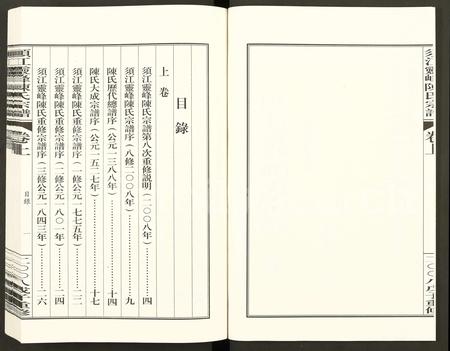 須江靈峰陳氏宗譜
卷上
二〇〇八戊子重修
目錄
上卷
須江靈峰陳氏宗譜第八次重修説明(二〇〇八年)……四
須江靈峰陳氏宗譜序(八修二〇〇八年)……九
陳氏歷代總譜序(公元一三八八年)……十四
陳氏大成宗譜序(公元一五二七年)……十七
須江靈峰陳氏重修宗譜序(一修公元一七七五年)……二二
須江靈峰陳氏重修宗譜序(二修公元一八〇一年)……二四
須江靈峰陳氏重修宗譜序(三修公元一八四三年)……二六
須江靈峰陳氏宗譜
卷上
目錄
一
二〇〇八戊子重修